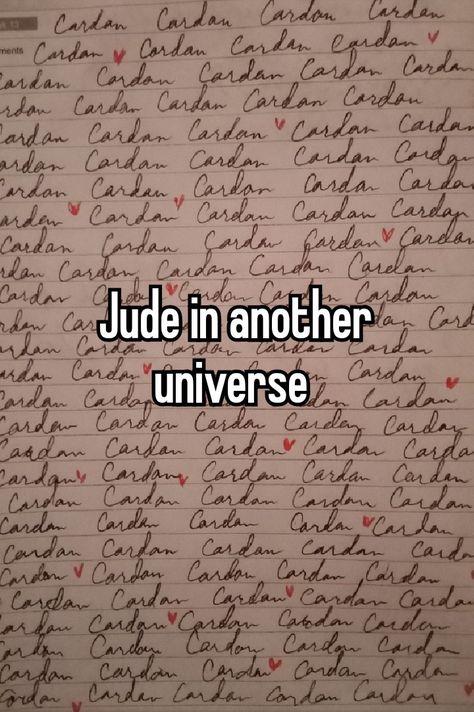 Cardan Cardan Cardan Cardan
ments
Cardan Cardan Cardan Cardan
ardan Cardan Cardan Cardan Cardan
rdan Cardan Cardan Cardan Cardan
ardan Cardan Cardan Cardan Cardan
ardan Cardan Cardan Cardan Cardan
ardan Cardan Cardan Cardan Cardan
ardan Cardan Cardan Cardan Cardan
Cardan Cardan Cardan Cardan Cardan
rdan Cardan Cardan Cardan Cardan
rdan Cardan Cardan Cardan Cardan
Jude in another
universe
dan Cardan Cardan Cardan Cardan
Cardan Cardan
Cardan Cardan Cardan Cardan Cardan
Cardan Cardan Cardan Cardan Cardan
Cardan Cardan Cardan Cardan Cardan
Cardan Cardan Cardan Cardan Cardan
Cardan Cardan Cardan Cardan Cardan
Cardan Cardan Cardan Cardan Cardan
Cardan Cardan Cardan Cardan Cardan
Cardan Cardan Cardan Cardan Cardan
Cardan Cardan Cardan Cardan Cardan
Cardan Cardan Cardan Cardan Cardan
Cardan Cardan Cardan Cardan Cardan
Cardan Cardan Cardan Cardan Cardan